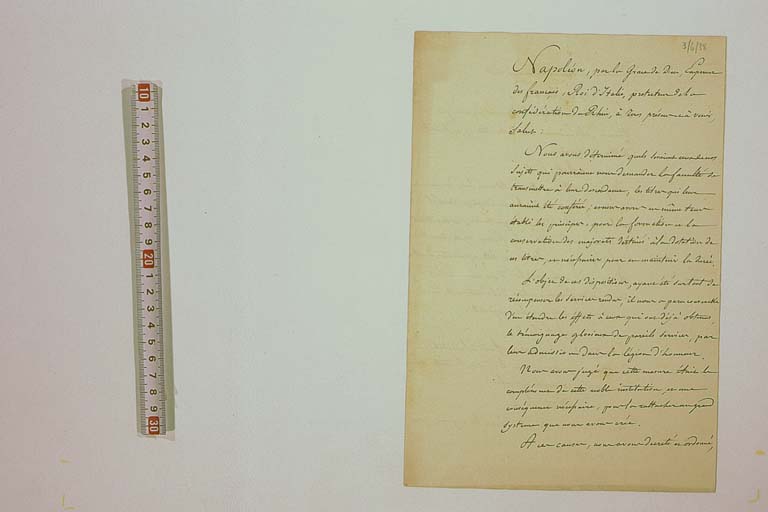 3/6/38
Napoléon, par la Grace de Dieu, Empereur
des français, Roi d'Italie, protecteur de la
confédération du Rhin, à tous présens et à venir,
Salut:
Nous avons déterminé quels seraient ceux de nos
Sujets qui pourraient nous demander la faculté de
transmettre à leur descendance, les titres qui leur
auraient été conférés; nous avons en même tems
établi les principes, pour la formation et la
conservation des majorats destinés à la dotation de
ces titres, et nécessaires pour en maintenir la durée.
L'objet de ces dispositions, ayant été surtout de
récompenser les services rendus, il nous a paru convenable
d'en étendre les effets à ceux qui ont déjà obtenu
le témoignage glorieux de pareils services, par
leur admission dans la légion d'honneur.
Nous avons jugé que cette mesure était le
complément de cette noble institution, et une
conséquence nécessaire, pour la rattacher au grand
système que nous avons créé.
A ces causes, nous avons décrété et ordonné,
10 1 2 3 4 5 6 7 8 9 20 1 2 3 4 5 6 7 8 9 30